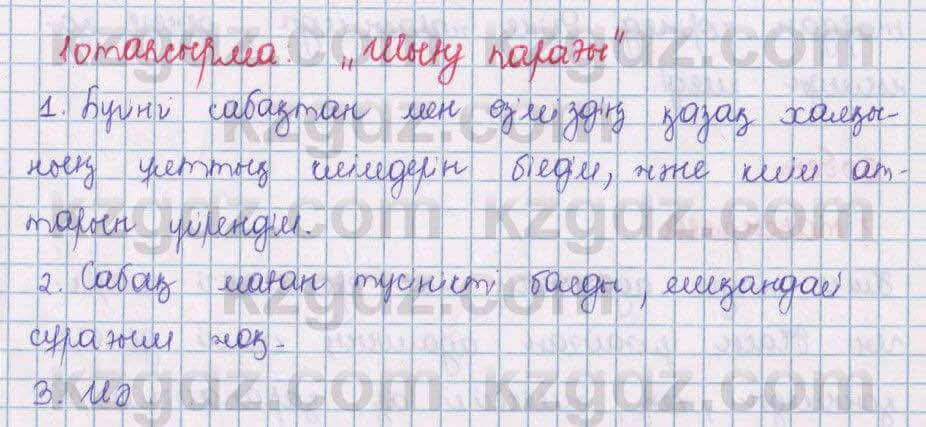 10 тапсырма: „Шығу парағы"
1. Бүгінгі сабақтан мен өзіміздің қазақ халқы-
ның ұлттық киімдерін білдім, және киім ат-
тарын үйрендім.
2. Сабақ маған түсінікті болды, ешқандай
сұрағым жоқ.
3. Иә
kzgdz.com